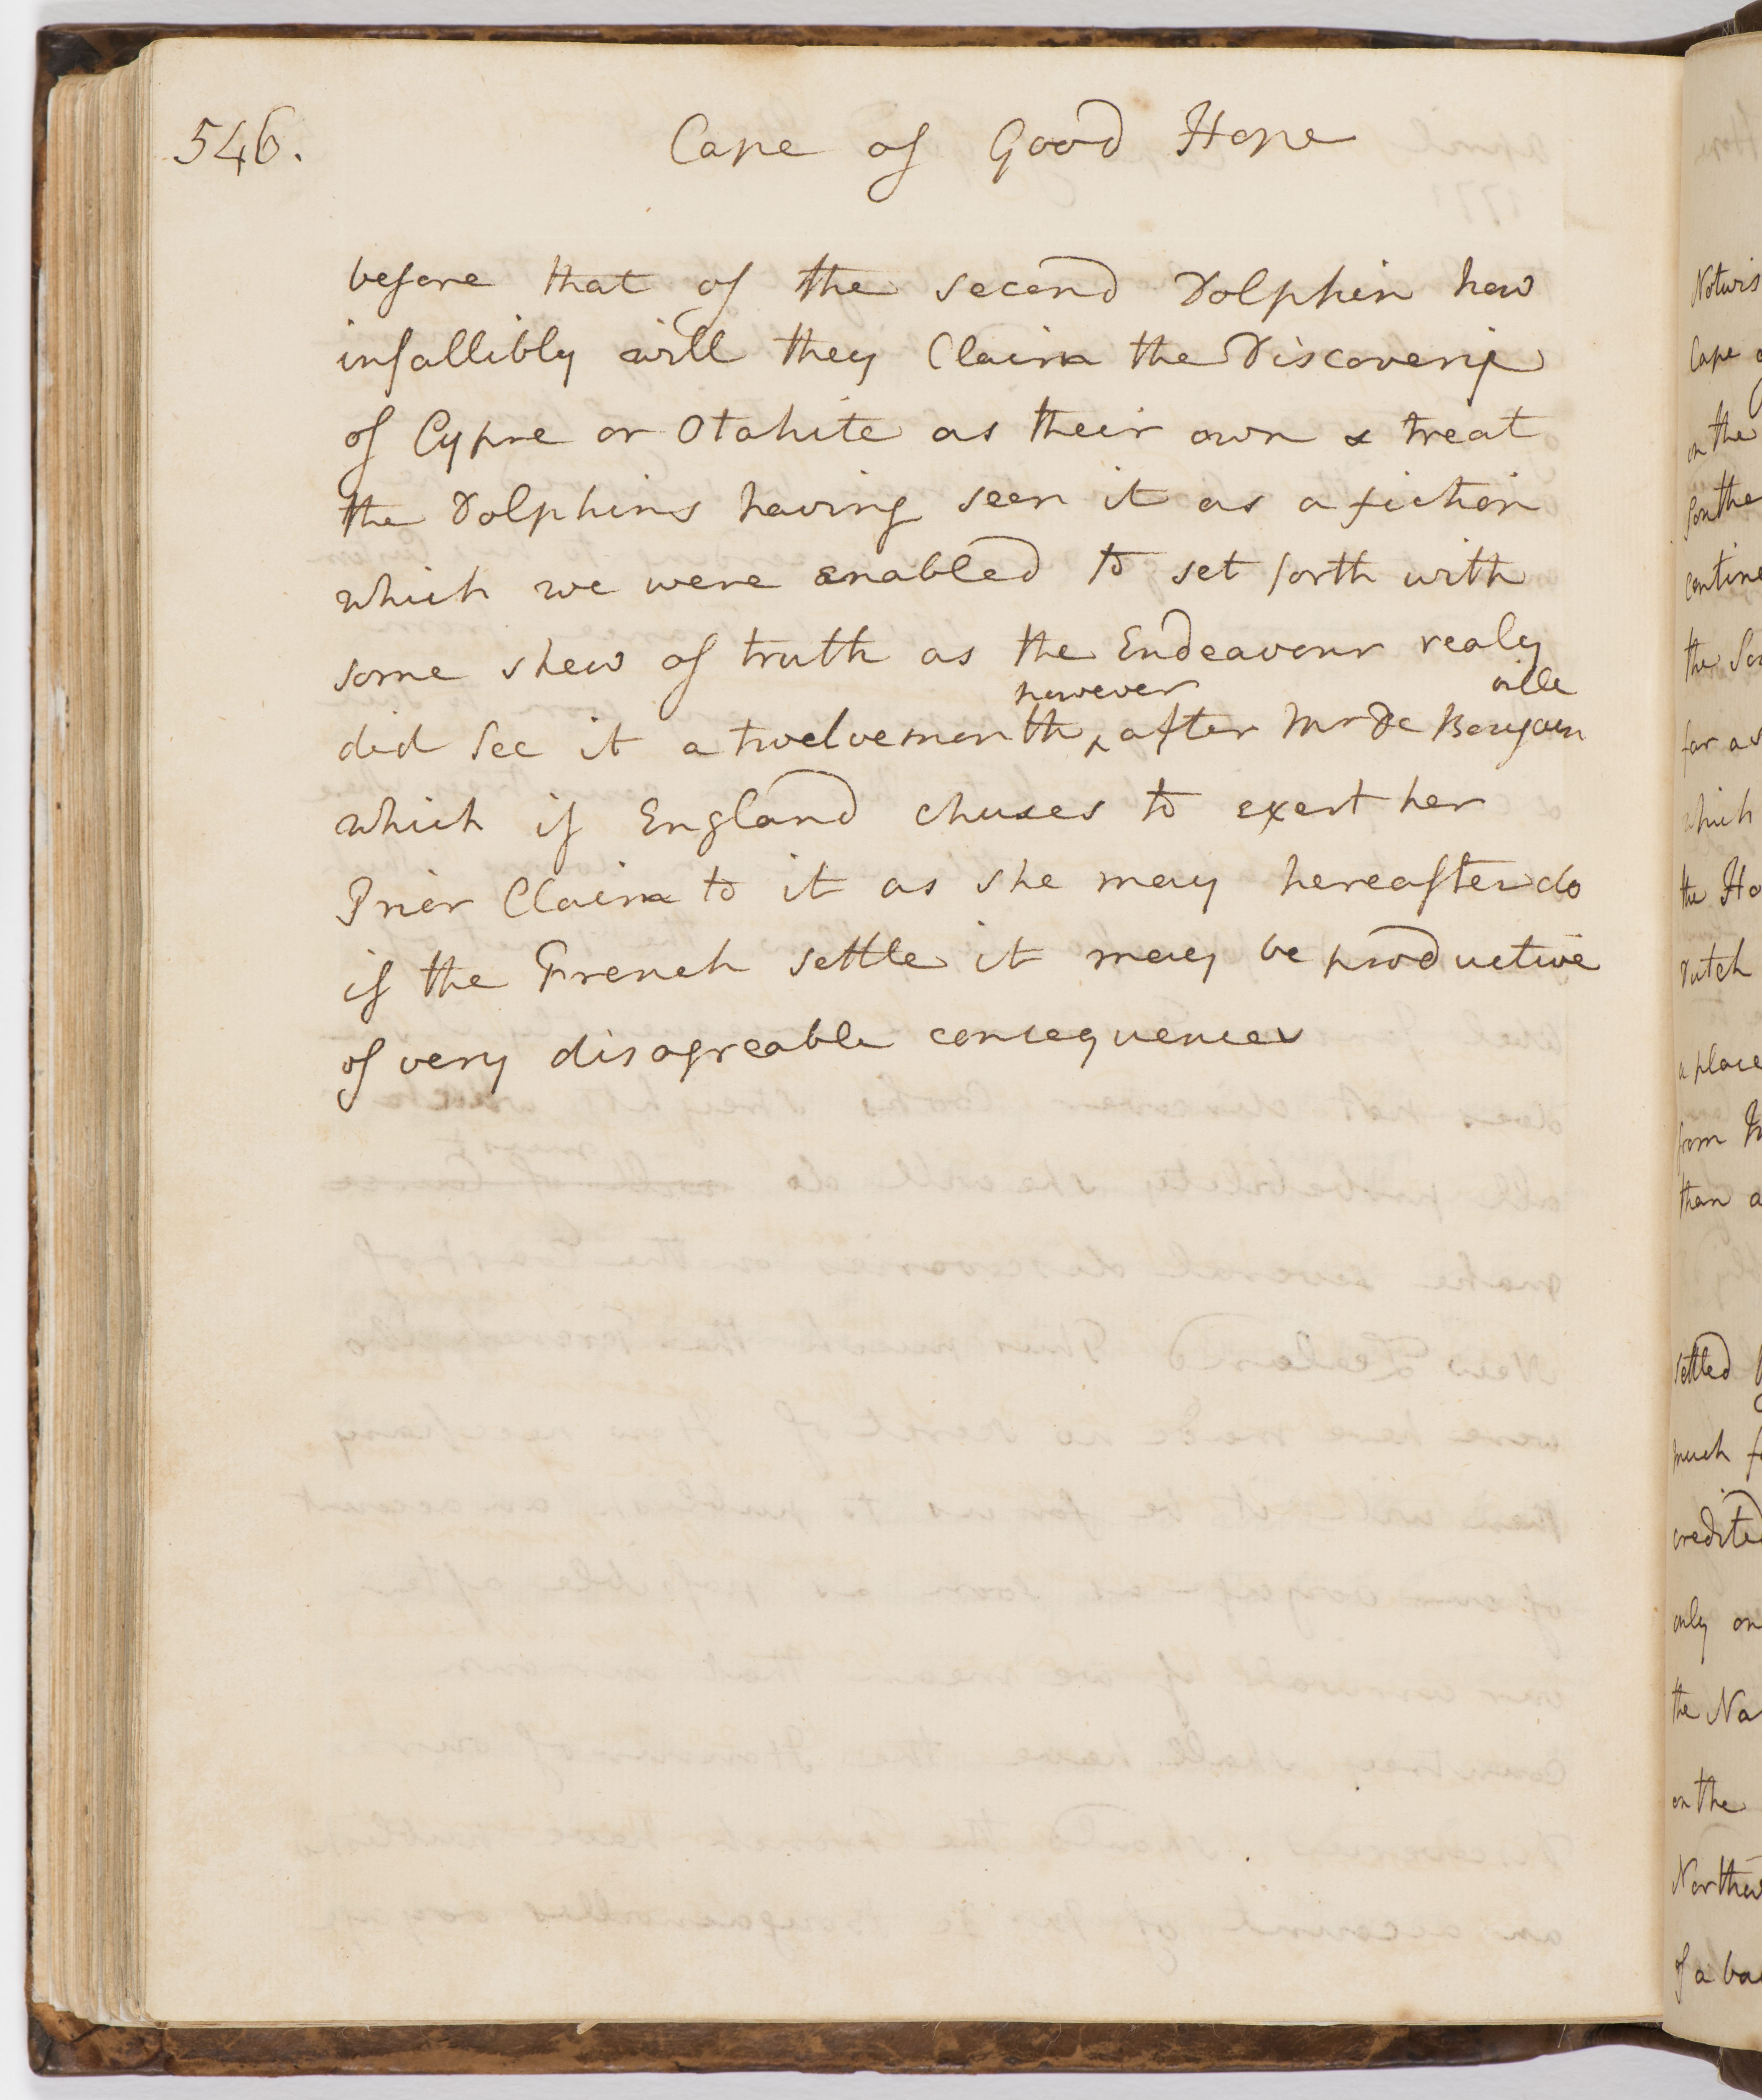 546.
Cape of Good Hope
before that of the second Dolphin how
infallibly will they Claim the Discovery
of Cypre or Otahite as their own & treat
the Dolphins having seen it as a fiction
which we were enabled to set forth with
some shew of truth as the Endeavour realy
however ville
did See it a twelvemonth ^ after Mr De Bougain
which if England chuses to exert her
Prior Claim to it as she may hereafter do
if the French settle it may be productive
of very disagreable concequences
Notwis
Cape
on the
Southe
contine
the So
far as
which
the Ho
Dutch
a place
from
than a
settled
much
credited
only on
the Na
on the
Northw
of a ba